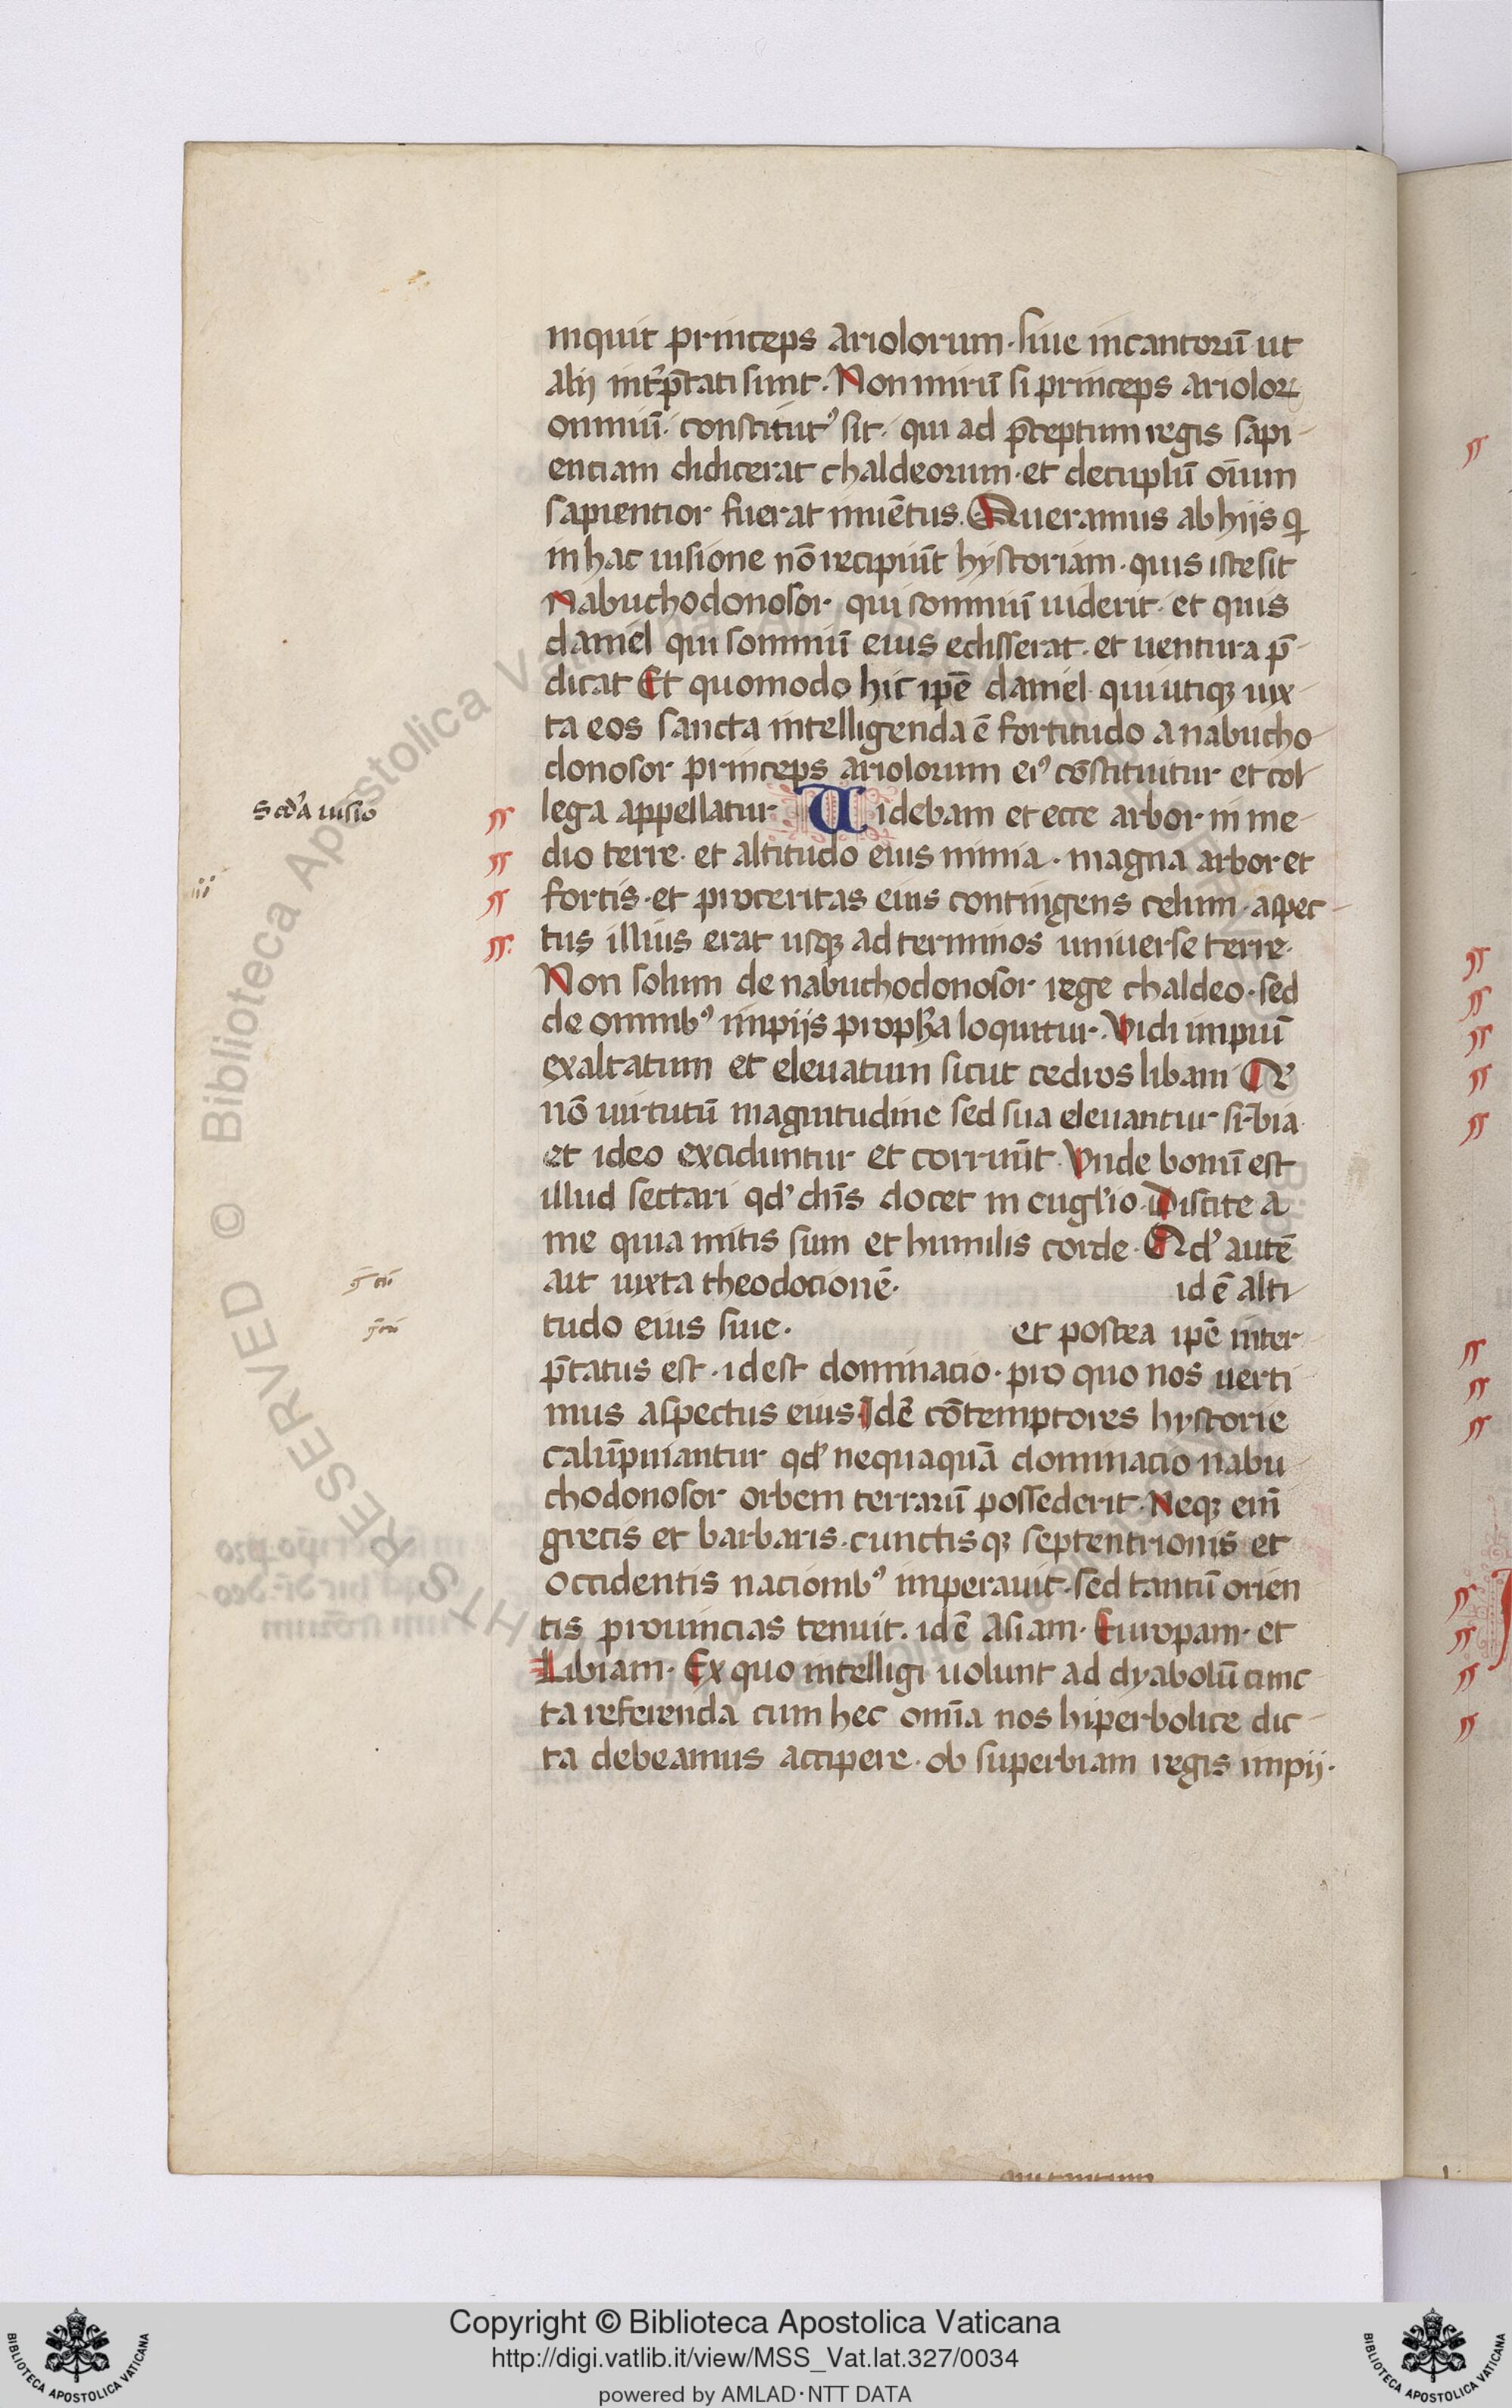 inquit princeps ariolorum. siue incantorū ut
alij int̉p̄tati sunt. Non mirū si princeps arioloꝝ
omniū. constitutꝰ sit. qui ad p̄ceptum regis sapi-
entiam didicerat chaldeorum. et decuplū oīum
sapientior fuerat inuētus. Queramus ab hijs qi
in hac uisione nō recipiūt hystoriam. quis iste sit
Nabuchodonosor. qui somniū uiderit. et quis
daniel qui somniū eius edisserat. et uentura p̄-
dicat Et quomodo hic ipē daniel. qui utiqꝫ iux-
ta eos sancta intelligenda ē fortitudo a nabucho-
donosor princeps ariolorum eiꝰ cōstituitur et col-
scd̓a uisio
lega appellatur. Uidebam et ecce arbor in me-
dio terre. et altitudo eius nimia. magna arbor et
iii
fortis. et proceritas eius contingens celum. aspec-
tus illius erat usqꝫ ad terminos uniuerse terre.
Non solum de nabuchodonosor rege chaldeo. sed
de omnibꝰ impijs proph̄a loquitur. Vidi impiū
exaltatum et eleuatum sicut cedros libani Qi
nō uirtutū magnitudine sed sua eleuantur suꝑbia
et ideo exciduntur et corruūt. Vnde bonū est
illud sectari qd̓ chīs docet in euglio. Discite a
me quia mitis sum et humilis corde. Qd̓ autē
ait iuxta theodocionē. id ē alti-
tudo eius siue. et postea ipē inter-
p̄tatus est. id est dominacio. pro quo nos uerti
mus aspectus eius. Idē cōtemptores hystorie
calūpniantur qd̓ nequaquā dominacio nabu-
chodonosor orbem terrarū possederit. Neqꝫ enī
grecis et barbaris. cunctisqꝫ septentrionis et
occidentis nacionibꝰ imperauit. sed tantū orien
tis prouincias tenuit. id ē Asiam. Europam. et
Libiam. Ex quo intelligi uolunt ad dyabolū cunc-
ta referenda cum hec omīa nos hiperbolice dic-
ta debeamus accipere. ob superbiam regis impij.
Copyright © Biblioteca Apostolica Vaticana
http://digi.vatlib.it/view/MSS_Vat.lat.327/0034
powered by AMLAD·NTT DATA